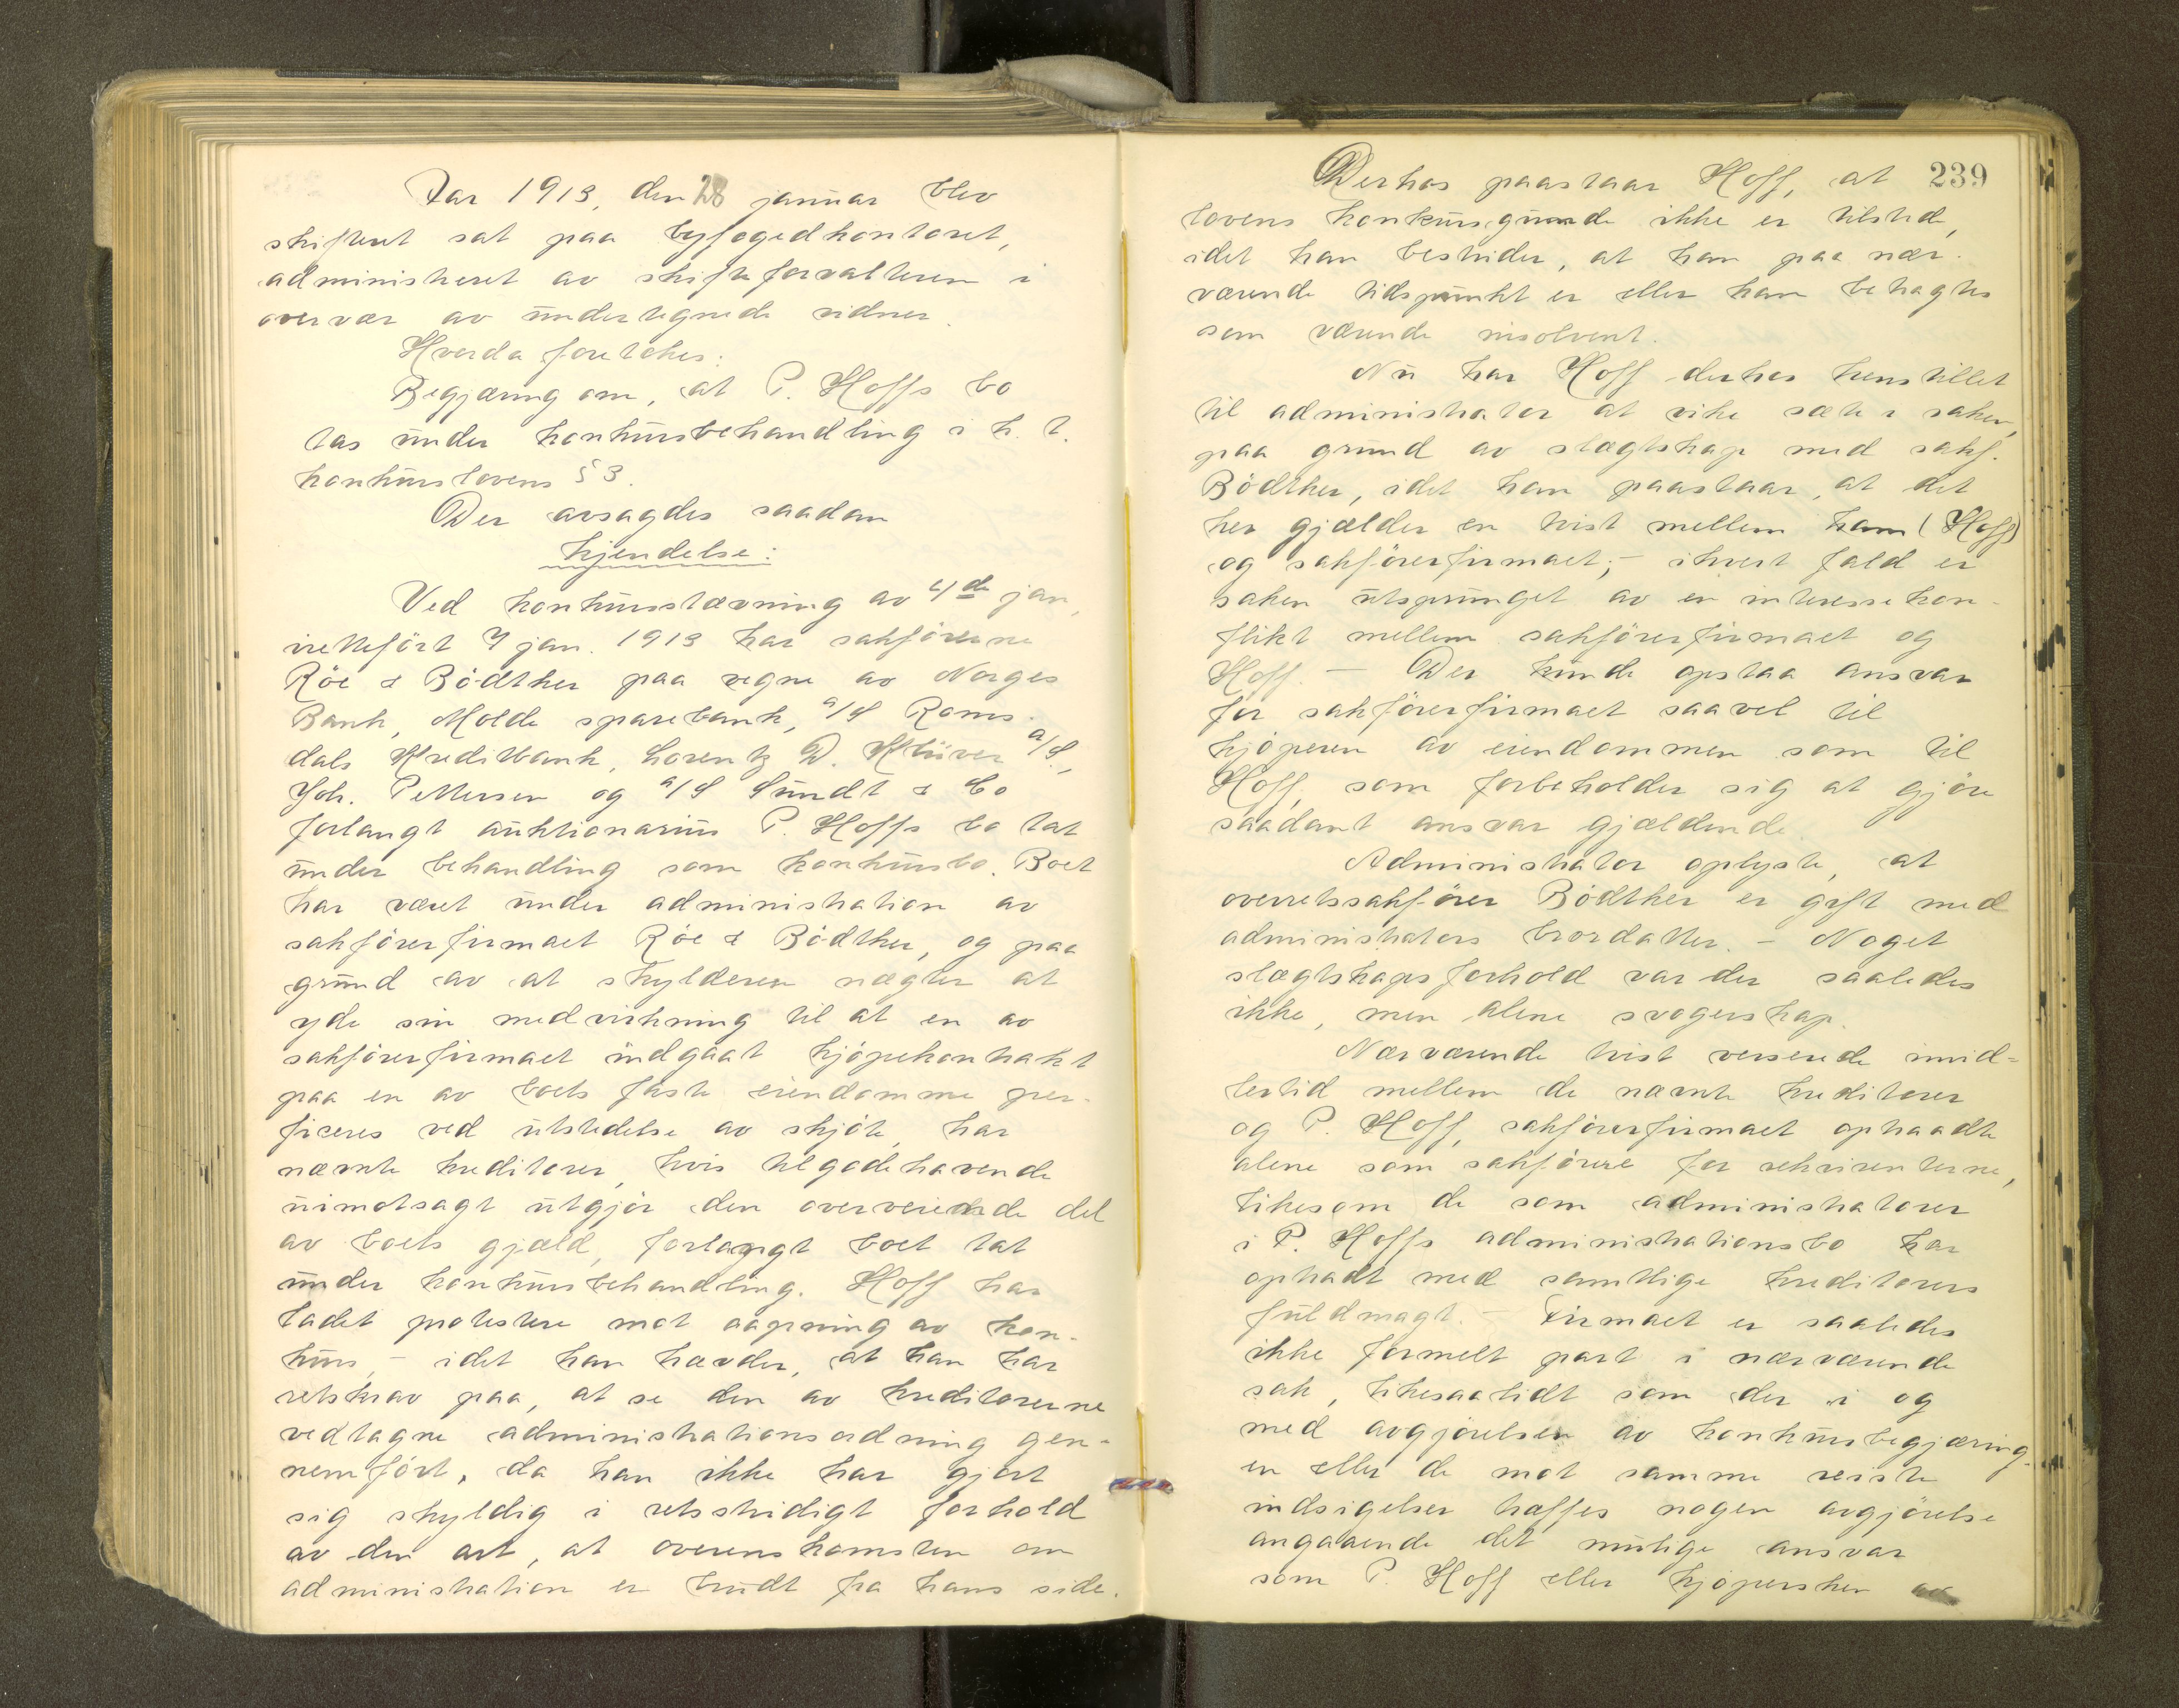 Aar 1913, den 28 januar blev
skifteret sat paa byfogedkontoret,
administreret av skifteforvalteren i
overvær av undertegnede vidner.
Hvorda foretokes:
Begjæring om, at P. Hoffs bo
tas under konkursbehandling i h. t.
konkurslovens § 3.
Der avsagdes saadan
kjendelse:
Ved konkursstævning av 4de jan,
irettefört 7 jan. 1913 har sakförerne
Röe & Bödtker paa vegne av Norges
Bank, Molde sparebank, a/S Roms-
dals Kreditbank, Lorentz D. Klüver a/S.,
Joh. Pettersen og a/S Sundt & Co
forlangt auktionarius P. Hoffs bo tat
under behandling som konkursbo. Boet
har været under administration av
sakförerfirmaet Röe & Bödtker, og paa
grund av at skylderen nægter at
yde sin medvirkning til at en av
sakförerfirmaet indgaat kjöpekontrakt
paa en av boets faste eiendomme per-
ficeres ved utstedelse av skjöte, har
nævnte kreditorer, hvis tilgodehavende
uimotsagt utgjör den overveiende del
av boets gjæld, forlangt boet tat
under konkursbehandling. Hoff har
ladet protestere mot aapning av kon-
kurs, - idet han hævder, at han har
retskrav paa, at se den av kreditorerne
vedtagne administrationsordning gen-
nemfört, da han ikke har gjort
sig skyldig i retsstridigt forhold
av den art, at overenskomsten om
administration er brudt fra hans side.
239
Derhos paastaar Hoff, at
lovens konkursgrunde ikke er tilstede,
idet han bestrider, at han paa nær-
værende tidspunkt er eller kan betragtes
som værende insolvent.
Nu har Hoff derhos henstillet
til administrator at vike sæte i saken,
paa grund av slægtskap med sakf.
Bödtker, idet han paastaar, at det
her gjælder en tvist mellem ham (Hoff)
og sakförerfirmaet; - ihvert fald er
saken utsprunget av en interessekon-
flikt mellem sakförerfirmaet og
Hoff. - Der kunde opstaa ansvar
for sakförerfirmaet saavel til
kjöperen av eiendommen som til
Hoff, som forbeholder sig at gjöre
saadant ansvar gjældende.
Administrator oplyste, at
overretssakförer Bödtker er gift med
administrators brordatter. - Noget
slægtskapsforhold var der saaledes
ikke, men alene svogerskap.
Nærværende tvist verserede imid=
lertid mellem de nævnte kreditorer
og P. Hoff, sakförerfirmaet optraadte
alene som sakförere for rekvirenterne,
likesom de som administratorer
i P. Hoffs administrationsbo har
optraadt med samtlige kreditorers
fuldmagt. - Firmaet er saaledes
ikke formelt part i nærværende
sak, likesaalidt som der i og
med avgjörelsen av konkursbegjæring-
en eller de mot samme reiste
indsigelser træffes nogen avgjörelse
angaaende det mulige ansvar
som P. Hoff eller kjöpersken av